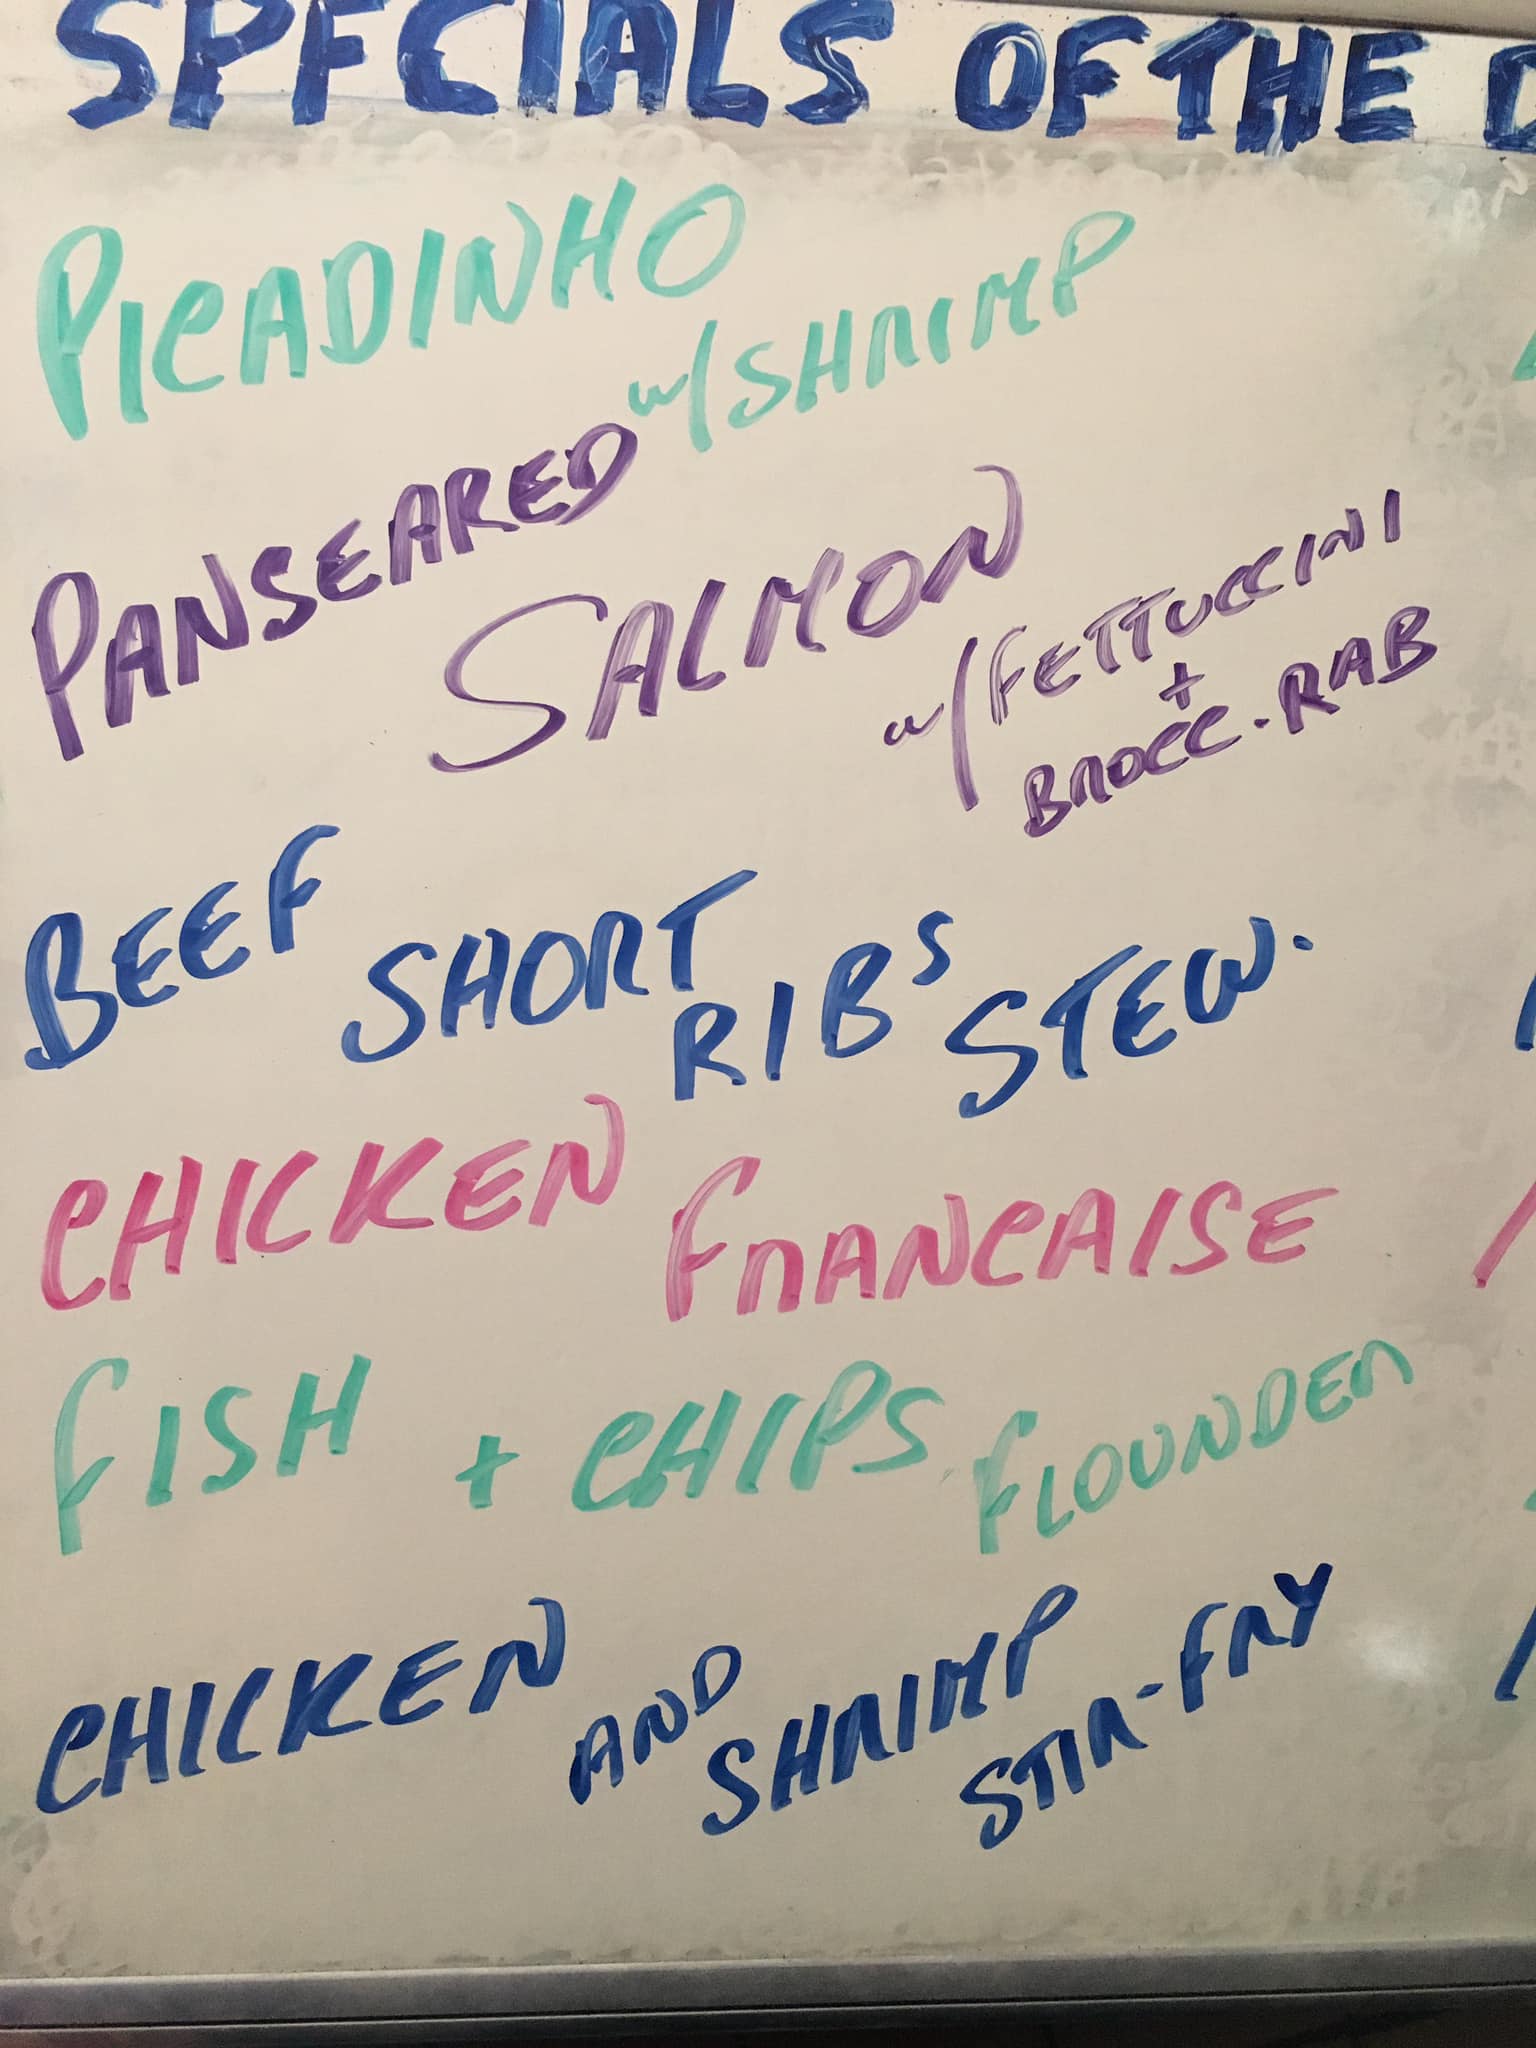 SPECIALS OF THE D
PICADINHO
w/SHRIMP
PANSEARED
SALMON
w/FETTUCCINI
+
BROCC.RAB
BEEF SHORT RIBS STEW.
CHICKEN FRANCAISE
FISH + CHIPS FLOUNDER
CHICKEN AND SHRIMP
STIR-FRY